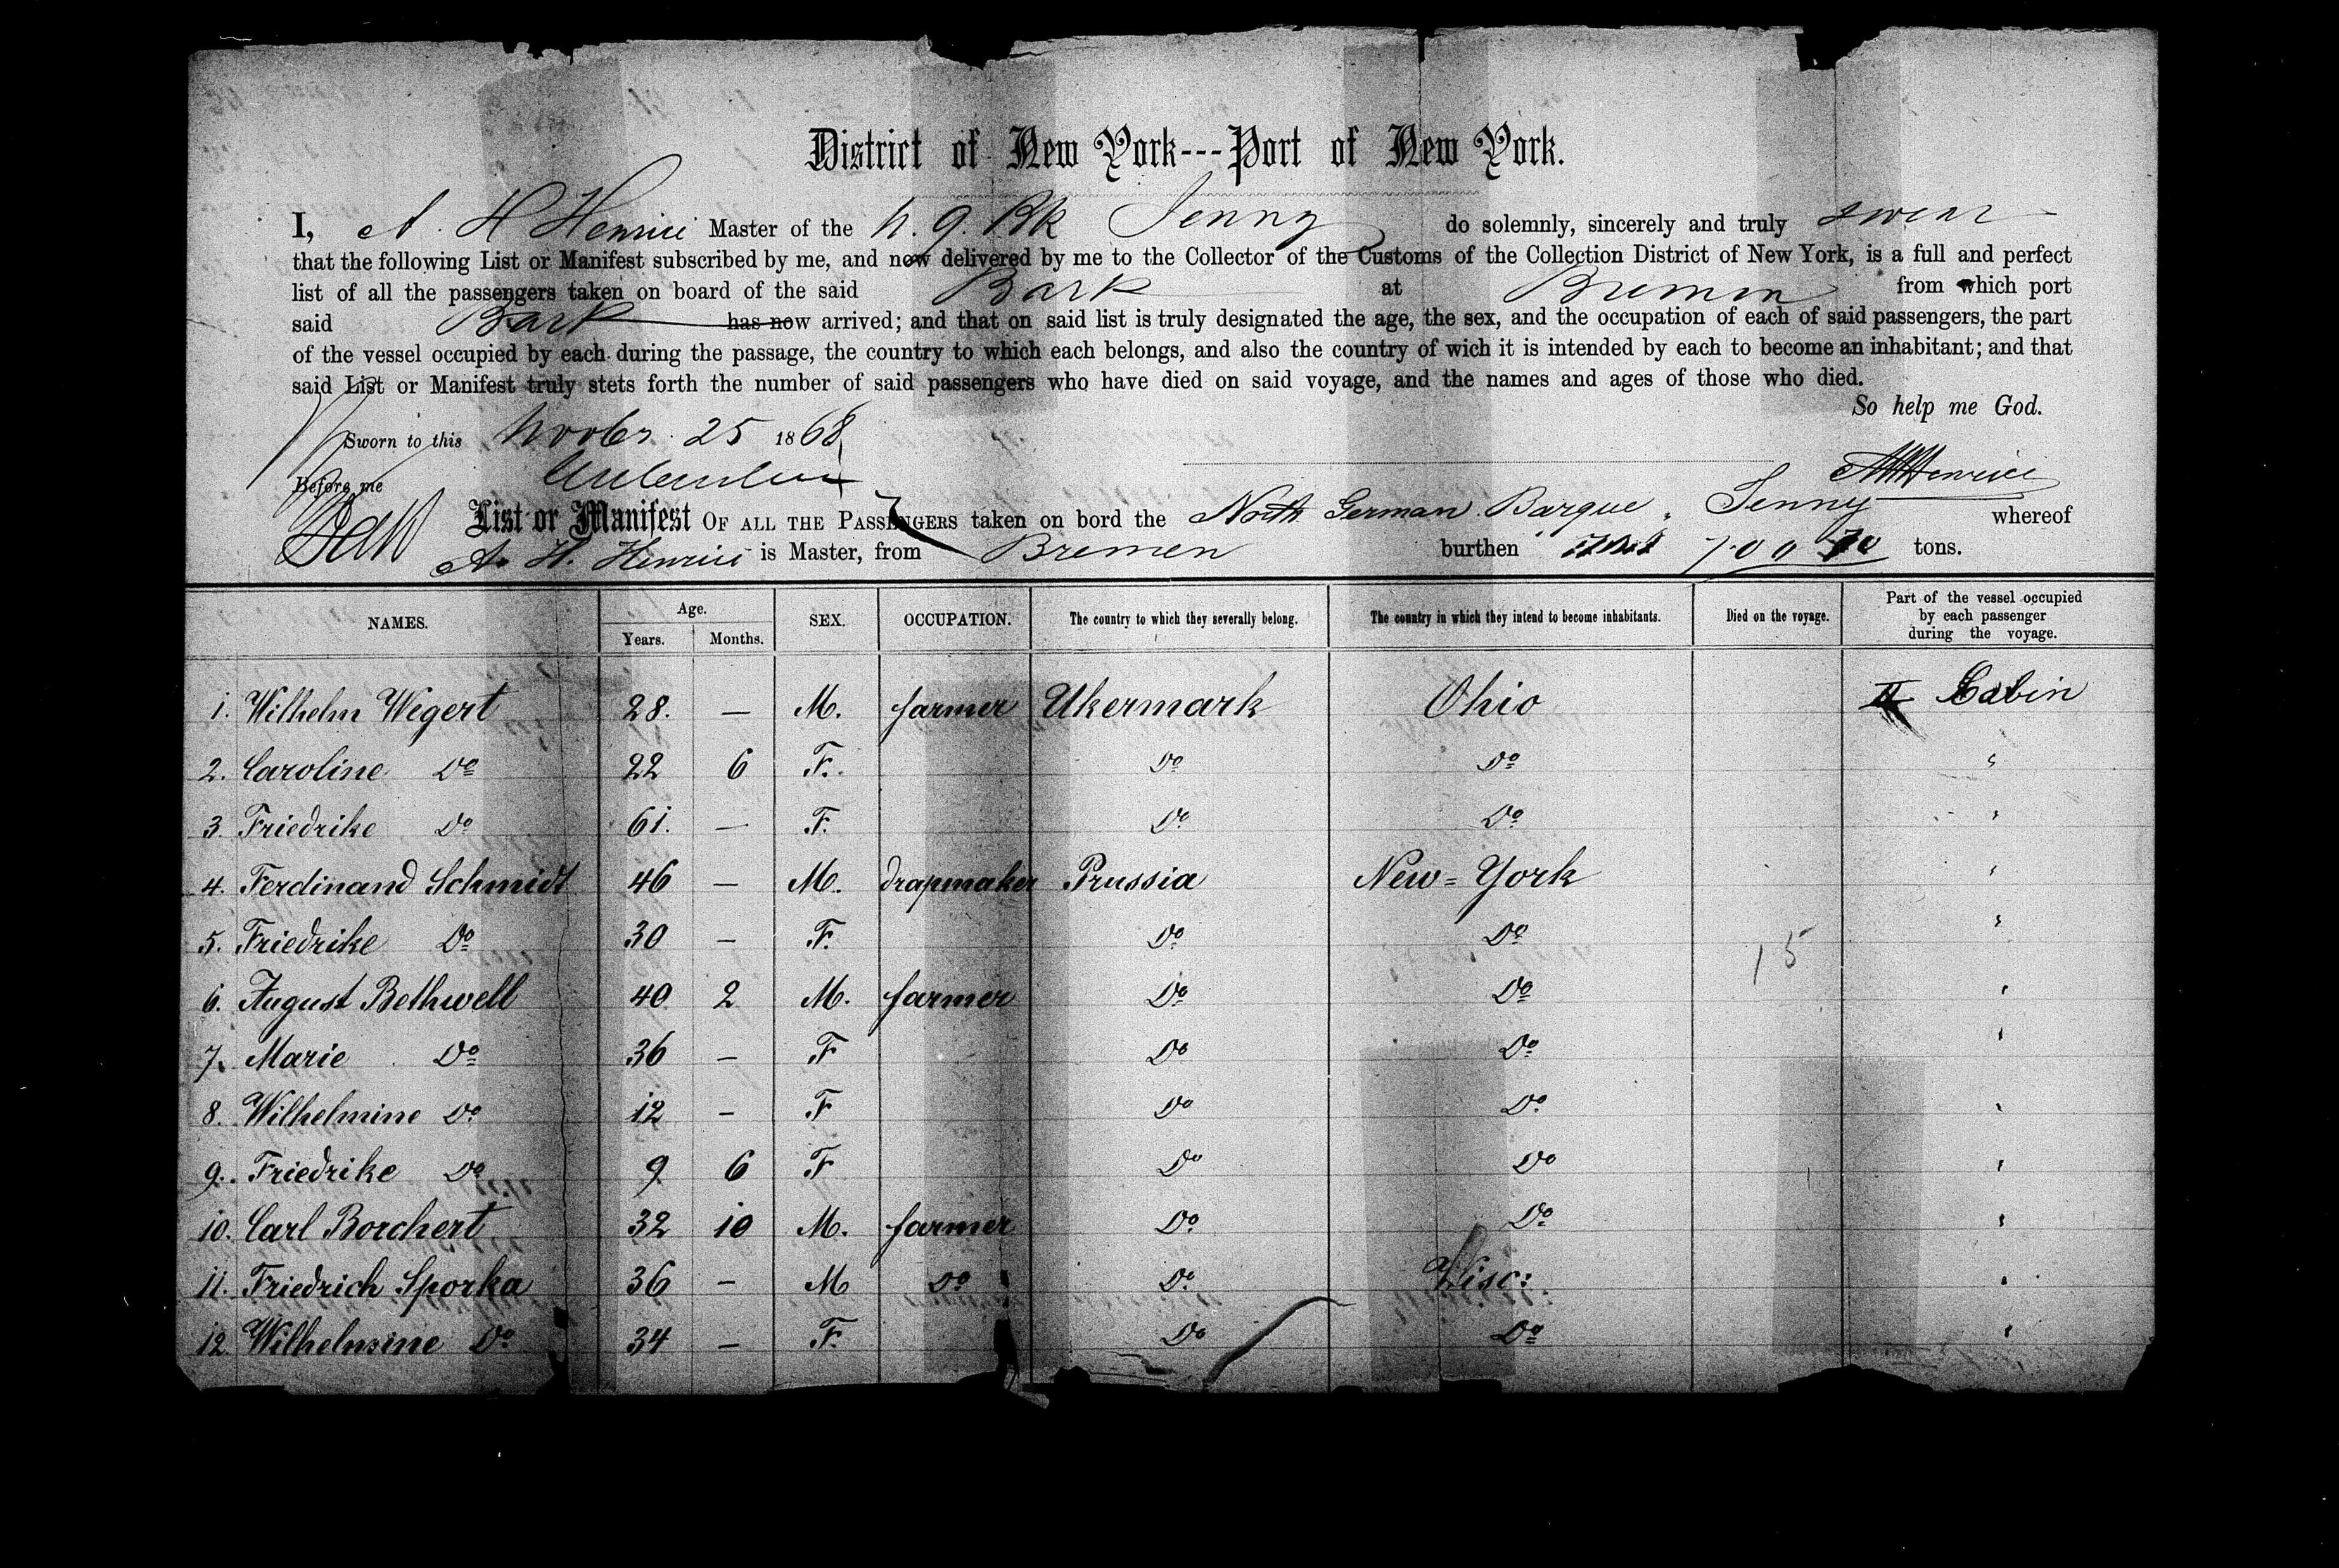 District of New York---Port of New York.
I, A. H Henrici Master of the N. G. Bk Jenny do solemnly, sincerely and truly swear
that the following List or Manifest subscribed by me, and now delivered by me to the Collector of the Customs of the Collection District of New York, is a full and perfect
list of all the passengers taken on board of the said Bark at Bremen from which port
said Bark has now arrived; and that on said list is truly designated the age, the sex, and the occupation of each of said passengers, the part
of the vessel occupied by each during the passage, the country to which each belongs, and also the country of wich it is intended by each to become an inhabitant; and that
said List or Manifest truly stets forth the number of said passengers who have died on said voyage, and the names and ages of those who died.
So help me God.
Sworn to this Novbr. 25 1868
AHHenrici
Before me
List or Manifest OF ALL THE PASSENGERS taken on bord the North German Barque "Jenny whereof
A. H. Henrici is Master, from Bremen burthen 700 tons.
NAMES. Age. Years. Months. SEX. OCCUPATION. The country to which they severally belong. The country in which they intend to become inhabitants. Died on the voyage. Part of the vessel occupied by each passenger during the voyage.
1. Wilhelm Wegert 28. — M. farmer Ukermark Ohio II Cabin
2. Caroline Do 22 6 F. Do Do "
3. Friedrike Do 61. — F. Do Do "
4. Ferdinand Schmidt 46 — M. drapmaker Prussia New=York "
5. Friedrike Do 30 — F. Do Do "
15
6. August Bethwell 40 2 M. farmer Do Do "
7. Marie Do 36 — F Do Do "
8. Wilhelmine Do 12 — F Do Do "
9. Friedrike Do 9 6 F Do Do "
10. Carl Borchert 32 10 M. farmer Do Do "
11. Friedrich Sporka 36 — M Do Do Wisc: "
12. Wilhelmine Do 34 — F. Do Do "